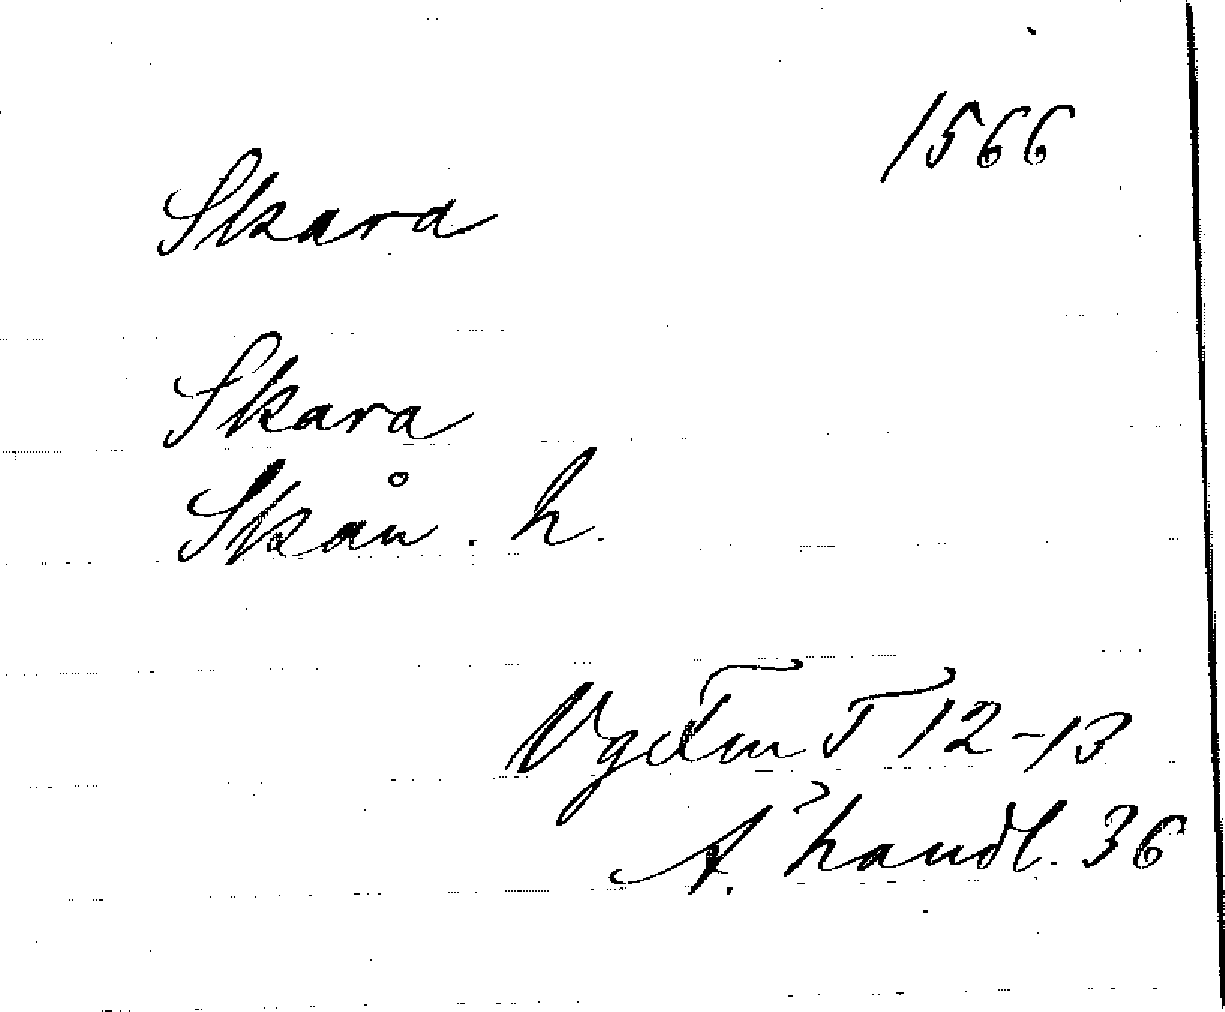 1566
Skara
Skara
Skån. h.
VgFm I 12-13
Ä. handl. 36